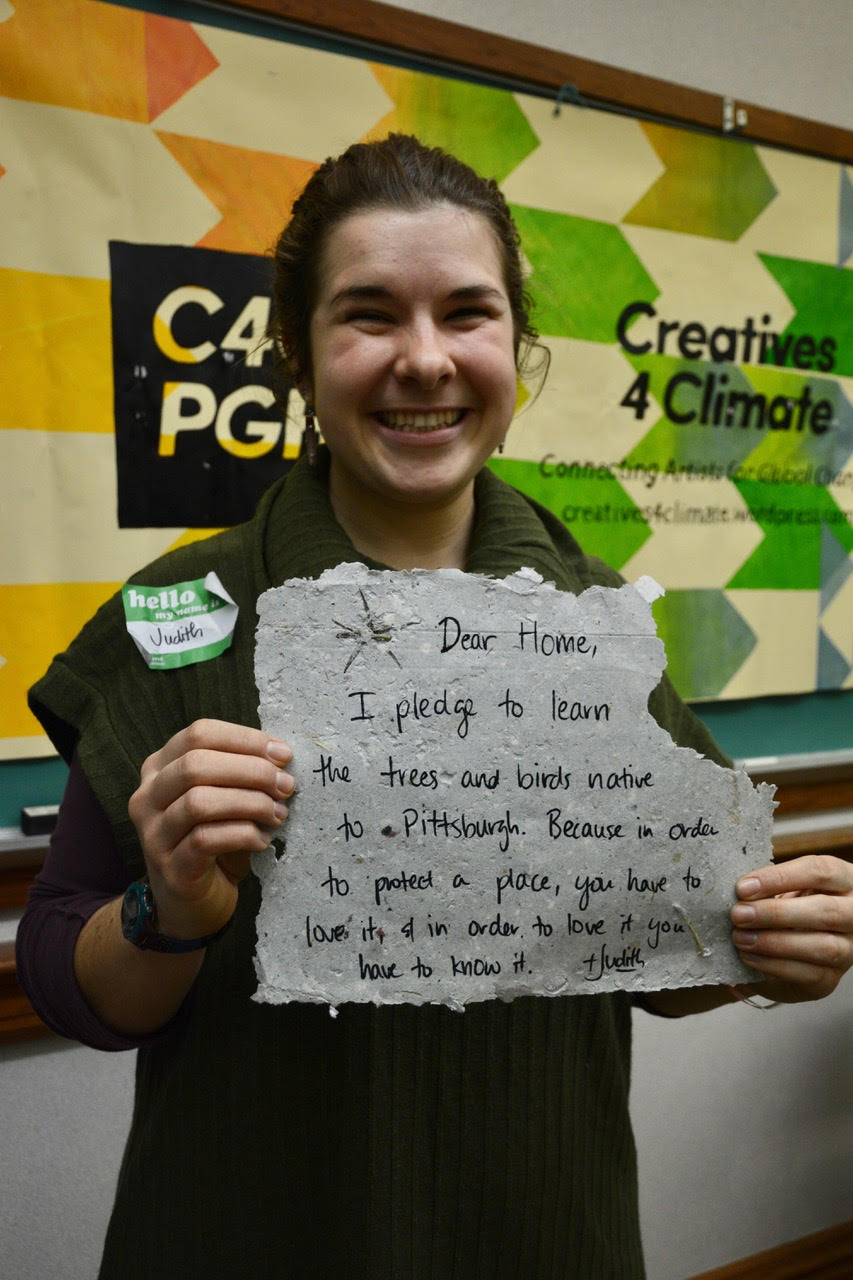 C4
PG
Creatives
4 Climate
Connecting Artists for Global
creatives4climate.wordpress.com
hello
my name is
Judith
Dear Home,
I pledge to learn
the trees and birds native
to Pittsburgh. Because in order
to protect a place, you have to
love it, & in order to love it you
have to know it. +Judith